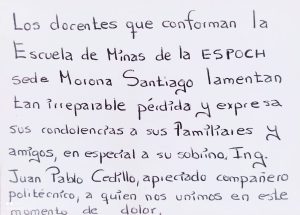 Los docentes que conforman la
Escuela de Minas de la ESPOCH
sede Morona Santiago lamentan
tan irreparable pérdida y expresa
sus condolencias a sus familiares y
amigos, en especial a su sobrino, Ing.
Juan Pablo Cedillo, apreciado compañero
politécnico, a quien nos unimos en este
momento de dolor.